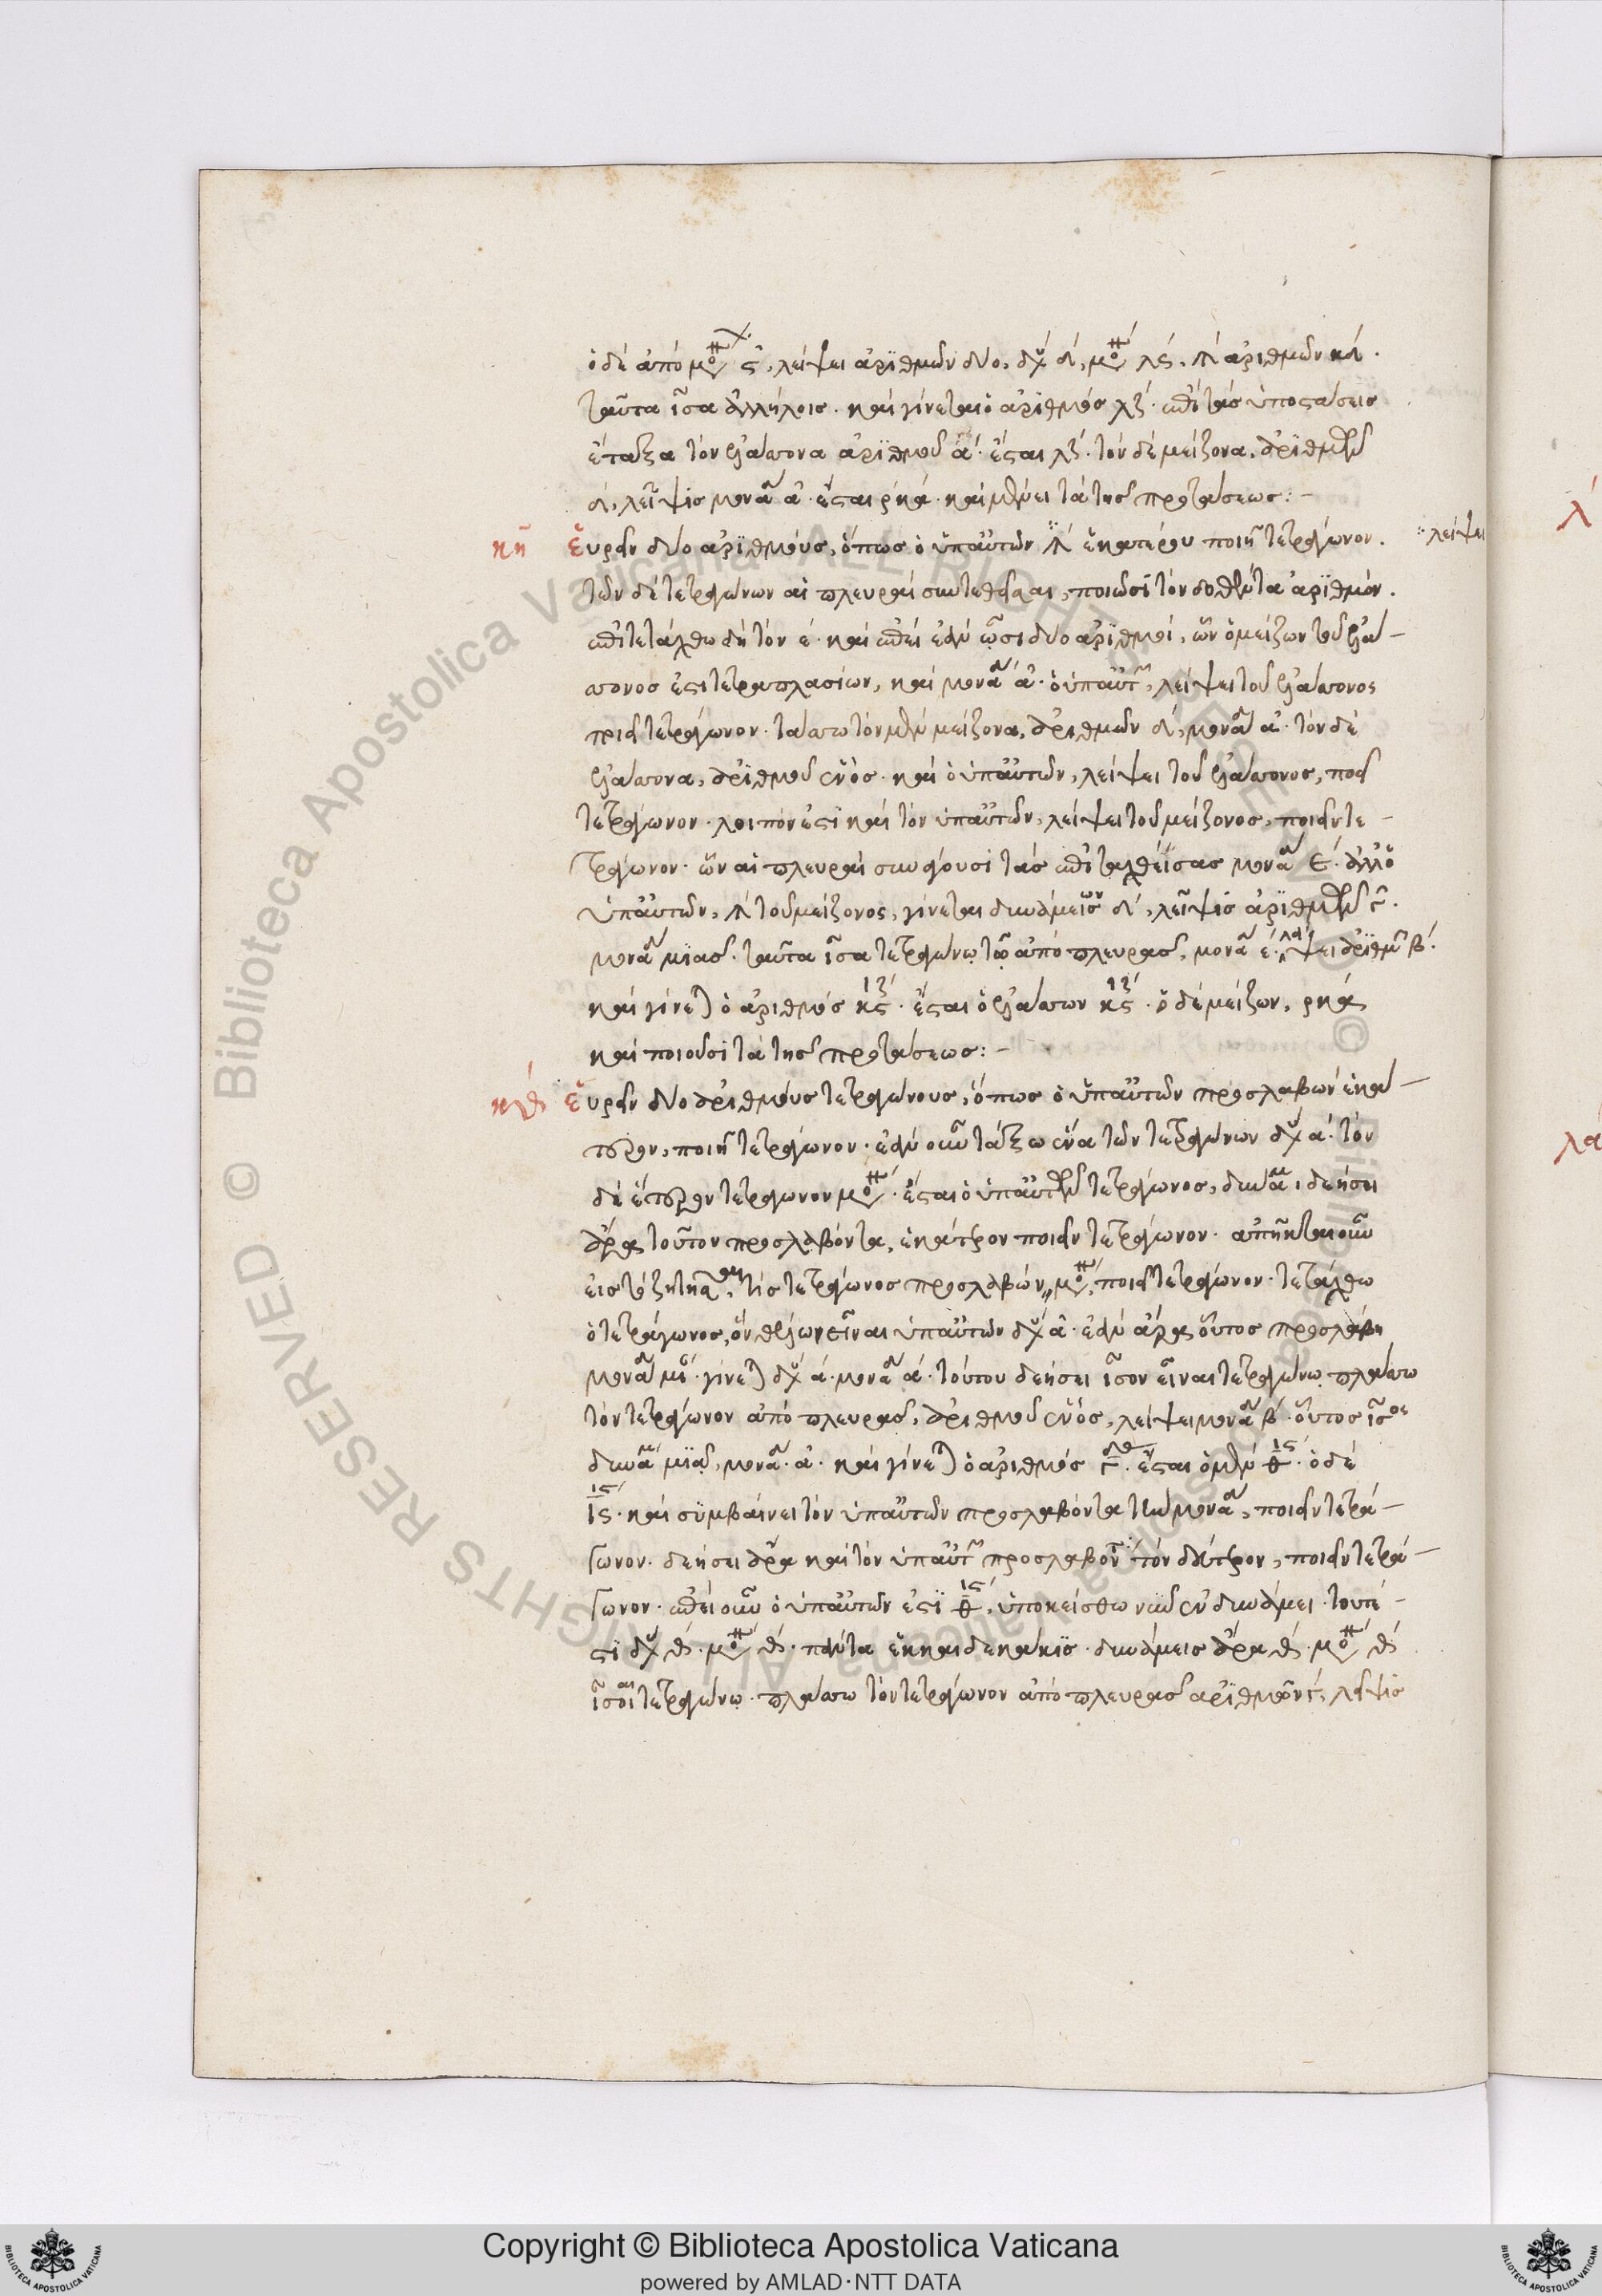 ὁ δὲ ἀπὸ μο ϛ, λείψει ἀριθμῶν δύο, δυ δ, μο λϛ, λ ἀριθμῶν κδ.
ταῦτα ἴσα ἀλλήλοις. καὶ γίνεται ὁ ἀριθμὸς λζ. ἐπὶ τὰς ὑποστάσεις
ἔταξα τὸν ἐλάττονα ἀριθμοῦ ἑ α. ἔσται λζ. τὸν δὲ μείζονα, ἀριθμῶν
δ, λεῖψις μονα α. ἔσται ρκα. καὶ μένει τὰ τῆς προτάσεως:-
κη Εὑρεῖν δύο ἀριθμοὺς, ὅπως ὁ ὑπ' αὐτῶν λ ἑκατέρου ποιῇ τετράγωνον.
λείψει
τῶν δὲ τετραγώνων αἱ πλευραὶ συντεθεῖσαι, ποιῶσι τὸν δοθέντα ἀριθμόν.
ἐπιτετάχθω δὴ τὸν ε. καὶ ἐπεὶ ἐὰν ὦσι δύο ἀριθμοί, ὧν ὁ μείζων τοῦ ἐλάτ-
τονος ἐστι τετραπλασίων, καὶ μονα α. ὁ ὑπ' αὐτ, λείψει τοῦ ἐλάττονος
ποιεῖ τετράγωνον. τάττω τὸν μὲν μείζονα, ἀριθμῶν δ, μονα α. τὸν δὲ
ἐλάττονα, ἀριθμοῦ ἑνός. καὶ ὁ ὑπ' αὐτῶν, λείψει τοῦ ἐλάττονος, ποιεῖ
τετράγωνον. λοιπόν ἐστι καὶ τὸν ὑπ' αὐτῶν, λείψει τοῦ μείζονος, ποιεῖν τε-
τράγωνον. ὧν αἱ πλευραὶ συνάγουσι τὰς ἐπιταχθείσας μονα ε. ἀλλ' ὁ
ὑπ' αὐτῶν, λ τοῦ μείζονος, γίνεται δυνάμεων δ, λεῖψις ἀριθμῶν γ.
μονα μιᾶς. ταῦτα ἴσα τετραγώνῳ τῷ ἀπὸ πλευρᾶς, μονα ε. λείψει ἀριθμ β.
καὶ γίνε ὁ ἀριθμὸς κϛ ιζ. ἔσται ὁ ἐλάττων κϛ ιζ. ὁ δὲ μείζων, ρκα
καὶ ποιοῦσι τὰ τῆς προτάσεως:-
κθ Εὑρεῖν δύο ἀριθμοὺς τετραγώνους, ὅπως ὁ ὑπ' αὐτῶν προσλαβὼν ἑκά-
τερον, ποιῇ τετράγωνον. ἐὰν οὖν τάξω ἕνα τῶν τετραγώνων δυ α. τὸν
δὲ ἕτερον τετράγωνον μο. ἔσται ὁ ὑπ' αὐτῶν τετράγωνος, δυνα ι δεήσει
ἄρα τοῦτον προσλαβόντα, ἑκάτερον ποιεῖν τετράγωνον. ἀπῆκται οὖν
εἰς τὸ ζητῆσαι, τίς τετράγωνος προσλαβὼν μο, ποιεῖ τετράγωνον. τετάχθω
ὁ τετράγωνος, ὃν θέλων εἶναι ὑπ' αὐτῶν δυ α. ἐὰν ἄρα οὗτος προσλάβῃ
μονα μι. γίνε δυ α. μονα α. τούτου δεήσει ἴσον εἶναι τετραγώνῳ. πλάττω
τὸν τετράγωνον ἀπὸ πλευρᾶς, ἀριθμοῦ ἑνός, λείψει μονα β. οὗτος ἴσος
δυνα μιᾷ, μονα. α. καὶ γίνε ὁ ἀριθμὸς γ δ. ἔσται ὁ μὲν θ ιϛ. ὁ δὲ
ιϛ ιϛ. καὶ συμβαίνει τὸν ὑπ' αὐτῶν προσλαβόντα τὴν μονα, ποιεῖν τετρά-
γωνον. δεήσει ἄρα καὶ τὸν ὑπ' αὐτ προσλαβον τὸν δεύτερον, ποιεῖν τετρά-
γωνον. ἐπεὶ οὖν ὁ ὑπ' αὐτῶν ἐστι θ ιϛ, ὑποκείσθω νῦν ἐν δυνάμει. τουτέ-
στι δυ θ. μο θ. πάντα ἑκκαιδεκάκις. δυνάμεις ἄρα θ. μο θ
ἴσαι τετραγώνῳ. πλάττω τὸν τετράγωνον ἀπὸ πλευρᾶς ἀριθμῶν γ, λεῖψις
λ
λα
Copyright © Biblioteca Apostolica Vaticana
powered by AMLAD·NTT DATA
© Biblioteca Apostolica Vaticana ALL RIGHTS RESERVED